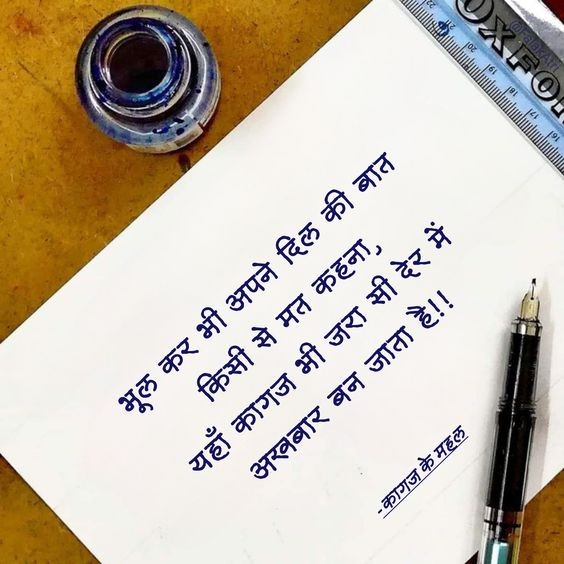 भूल कर भी अपने दिल की बात
किसी से मत कहना,
यहाँ कागज भी जरा सी देर में
अखबार बन जाता है!!
-कागज के महल
OXFO